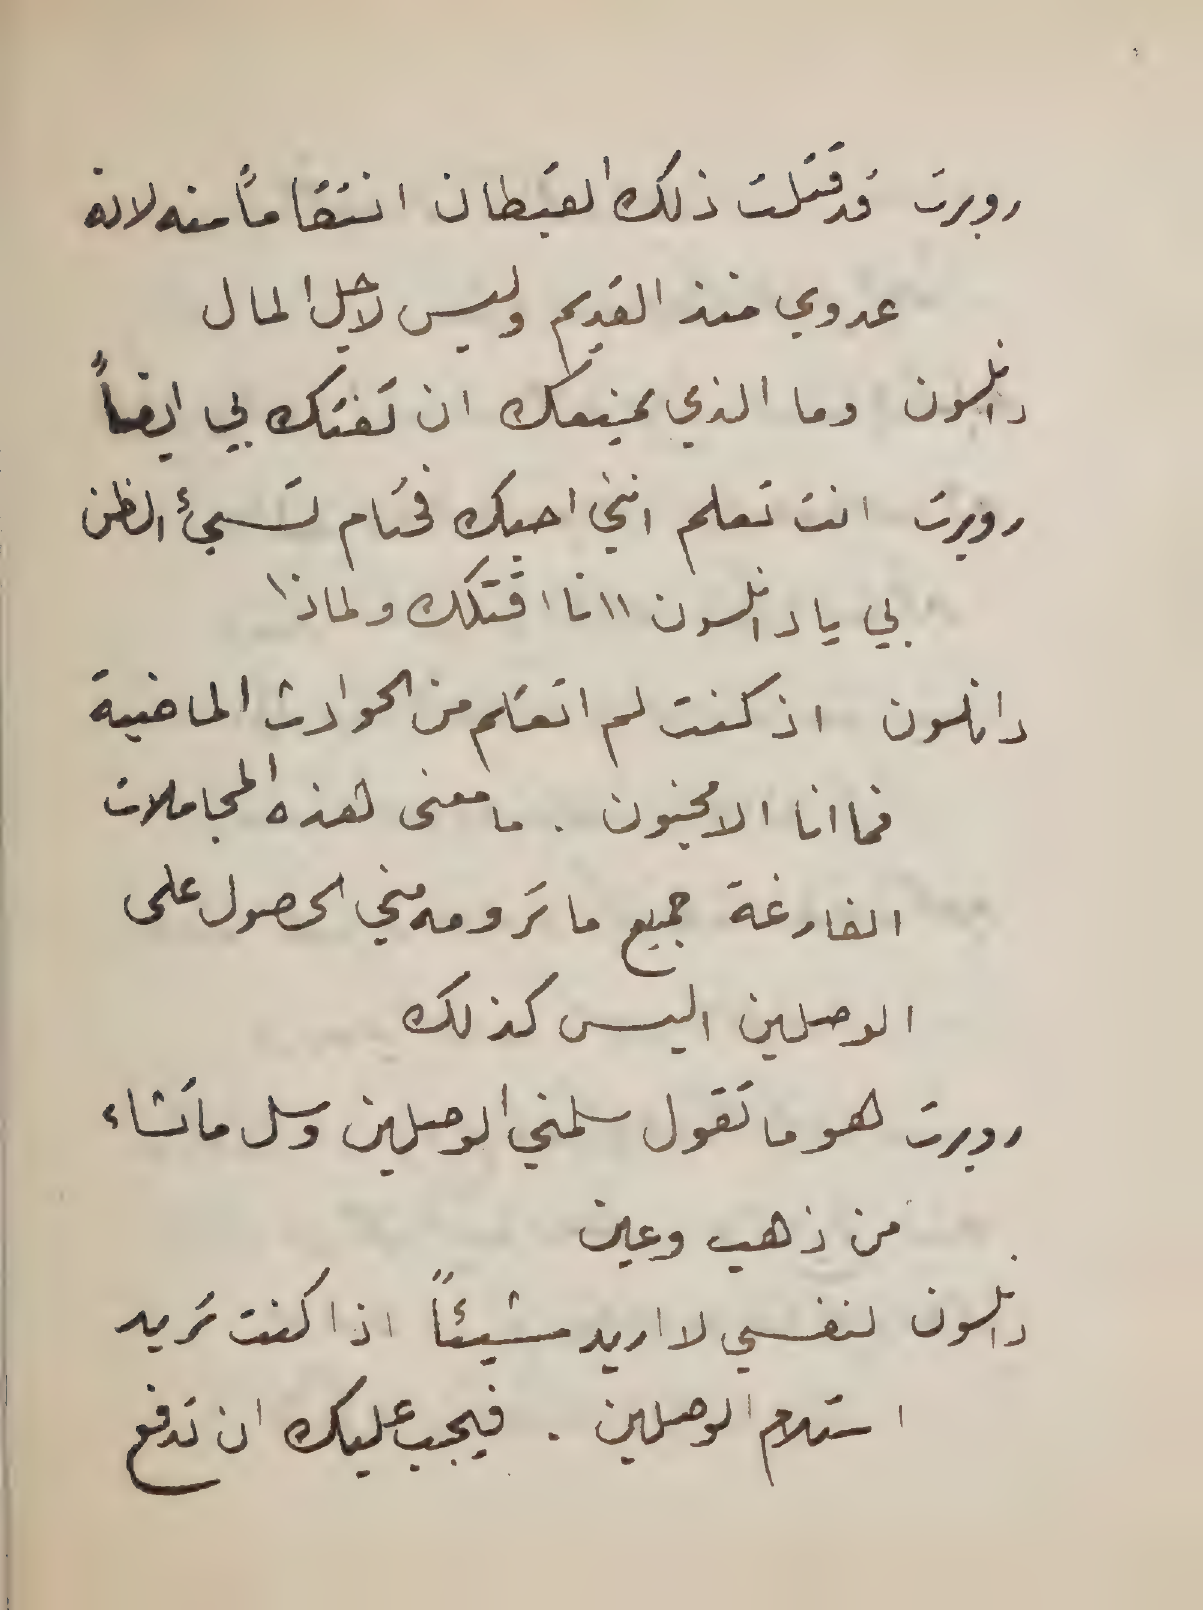 روبرت قد قتلت ذلك القبطان انتقاماً منه لانه
عدوي منذ القديم وليس لاجل المال
دانلسون وما الذي يمنعك ان تفتك بي ايضاً
روبرت انت تعلم انني احبك فحتام تسيئ الظن
بي يا دانلسون اانا اقتلك ولماذا
دانلسون اذ كنت لم اتعلم من الحوادث الماضية
فما انا الا مجنون . ما معنى هذه المجاملات
الفارغة جميع ما ترومه مني الحصول على
الوصلين اليس كذلك
روبرت هو ما تقول سلمني الوصلين وسل ما تشاء
من ذهب وعين
دانلسون لنفسي لا اريد شيئاً اذا كنت تريد
استلام الوصلين . فيجب عليك ان تدفع